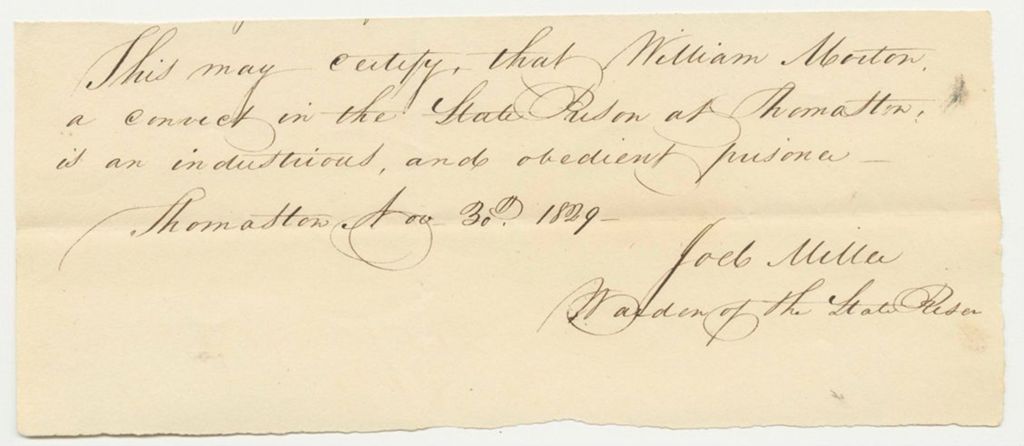 This may certify, that William Morton,
a convict in the State Prison at Thomaston,
is an industrious, and obedient prisoner —
Thomaston Nov 30th. 1829 —
Joel Miller
Warden of the State Prison